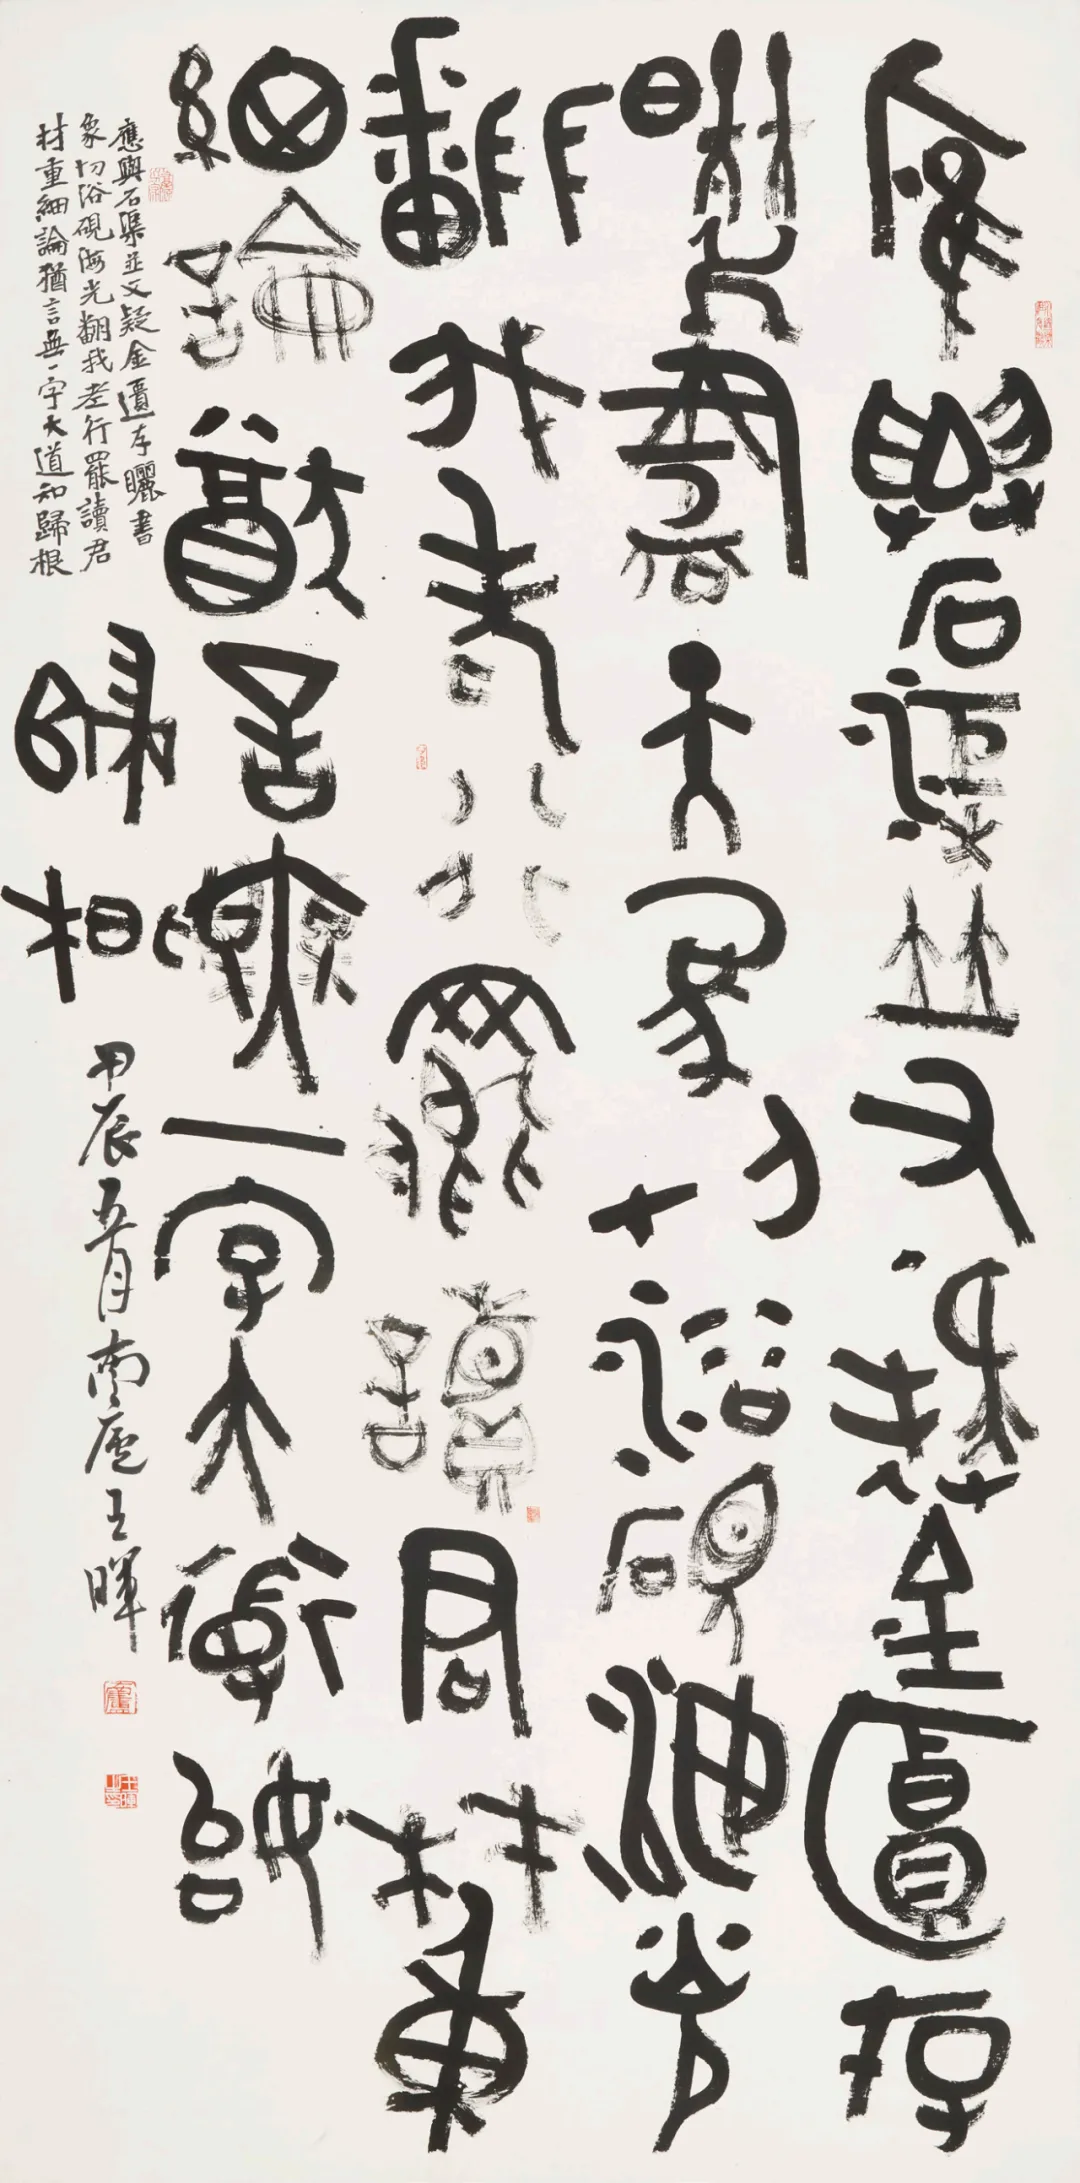 應與石渠並又疑金匱存
曬書天象切浴硯海光
翻我老行罷讀君材重
細論猶言無一字大道知
歸根
甲辰五月南廬王暉
應與石渠並又疑金匱存曬書
象切浴硯海光翻我老行罷讀君
材重細論猶言無一字大道知歸根